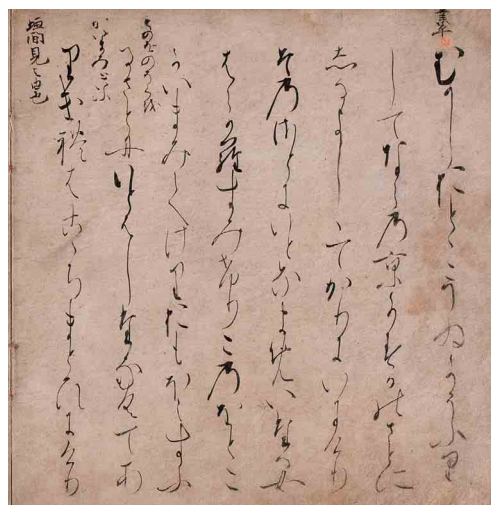 むかしおとこうゐかうふり
してならの京かすかのさとに
しるよしゝてかりにいにけり
そのさとにいとなまめいたる女
はらからすみけりこのおとこ
かいまみてけりおもほえすふ
るさとにいとはしたなくてあ
りけれはこゝちまとひにけり
垣間見之由也